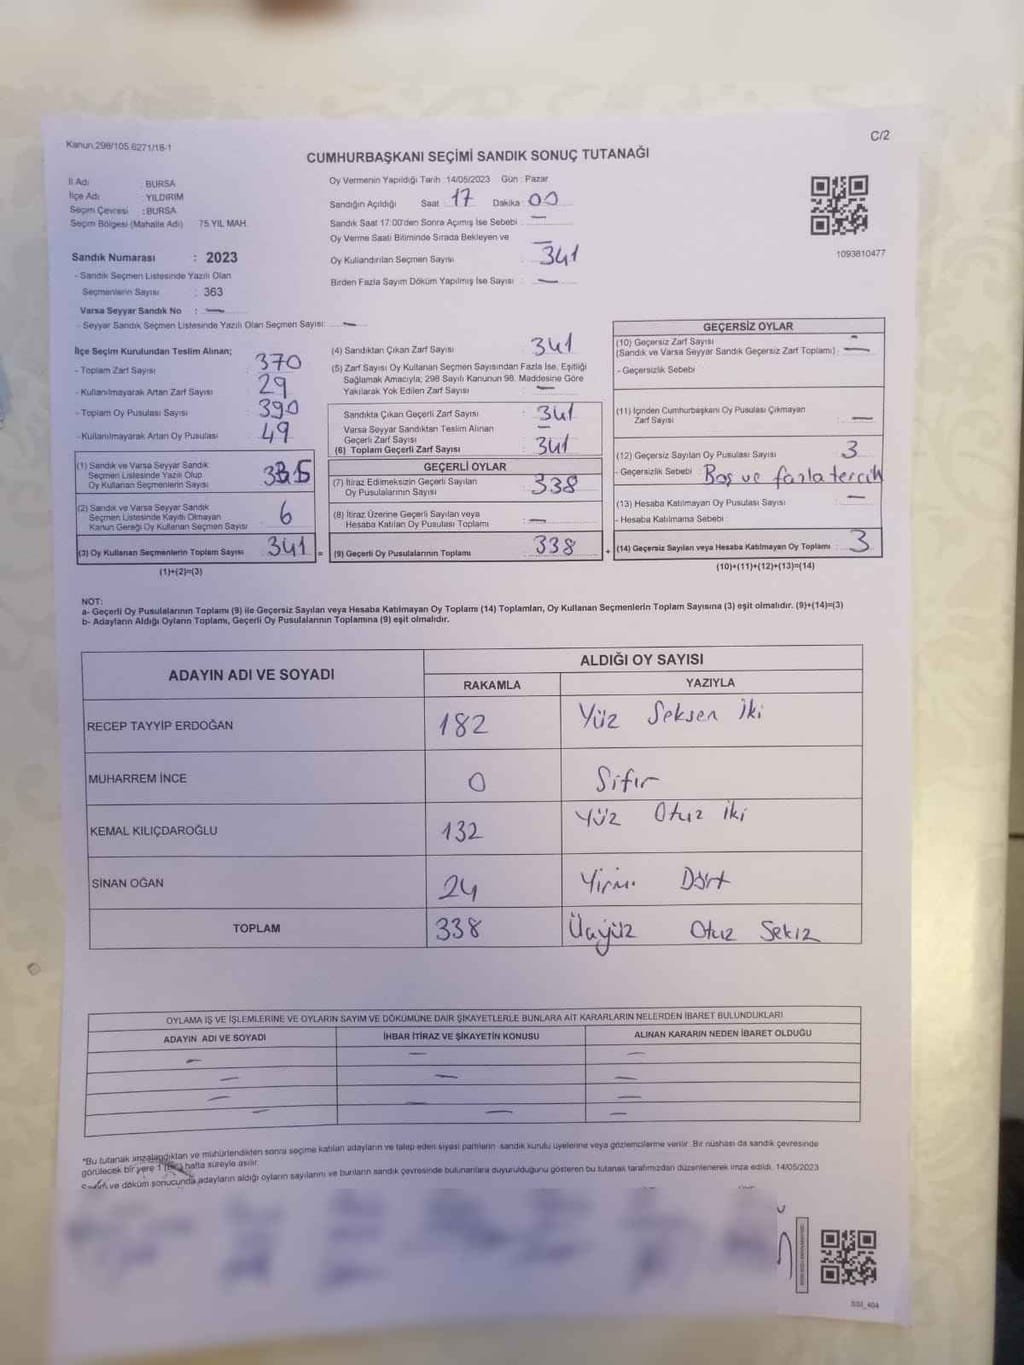 Kanun.298/105.6271/18-1
C/2
CUMHURBAŞKANI SEÇİMİ SANDIK SONUÇ TUTANAĞI
İl Adı : BURSA
İlçe Adı : YILDIRIM
Seçim Çevresi : BURSA
Seçim Bölgesi (Mahalle Adı) 75.YIL MAH.
Oy Vermenin Yapıldığı Tarih :14/05/2023 Gün : Pazar
Sandığın Açıldığı Saat : 17 Dakika : 00
Sandık Saat 17:00'den Sonra Açımış İse Sebebi : —
Oy Verme Saati Bitiminde Sırada Bekleyen ve
Oy Kullandırılan Seçmen Sayısı — 341
Birden Fazla Sayım Döküm Yapılmış İse Sayısı : —
1093810477
Sandık Numarası : 2023
- Sandık Seçmen Listesinde Yazılı Olan
Seçmenlerin Sayısı : 363
Varsa Seyyar Sandık No : —
- Seyyar Sandık Seçmen Listesinde Yazılı Olan Seçmen Sayısı: —
İlçe Seçim Kurulundan Teslim Alınan;
- Toplam Zarf Sayısı 370
- Kullanılmayarak Artan Zarf Sayısı 29
- Toplam Oy Pusulası Sayısı 390
- Kullanılmayarak Artan Oy Pusulası 49
(1) Sandık ve Varsa Seyyar Sandık
Seçmen Listesinde Yazılı Olup
Oy Kullanan Seçmenlerin Sayısı
(2) Sandık ve Varsa Seyyar Sandık
Seçmen Listesinde Kayıtlı Olmayan
Kanun Gereği Oy Kullanan Seçmen Sayısı 6
(3) Oy Kullanan Seçmenlerin Toplam Sayısı 341 =
(1)+(2)=(3)
(4) Sandıktan Çıkan Zarf Sayısı 341
(5) Zarf Sayısı Oy Kullanan Seçmen Sayısından Fazla İse, Eşitliği
Sağlamak Amacıyla; 298 Sayılı Kanunun 98. Maddesine Göre
Yakılarak Yok Edilen Zarf Sayısı : —
Sandıkta Çıkan Geçerli Zarf Sayısı : 341
Varsa Seyyar Sandıktan Teslim Alınan
Geçerli Zarf Sayısı —
(6) Toplam Geçerli Zarf Sayısı : 341
GEÇERLİ OYLAR
(7) İtiraz Edilmeksizin Geçerli Sayılan
Oy Pusulalarının Sayısı : 338
(8) İtiraz Üzerine Geçerli Sayılan veya
Hesaba Katılan Oy Pusulası Toplamı : —
(9) Geçerli Oy Pusulalarının Toplamı 338 +
GEÇERSİZ OYLAR
(10) Geçersiz Zarf Sayısı
(Sandık ve Varsa Seyyar Sandık Geçersiz Zarf Toplamı) —
- Geçersizlik Sebebi
(11) İçinden Cumhurbaşkanı Oy Pusulası Çıkmayan
Zarf Sayısı —
(12) Geçersiz Sayılan Oy Pusulası Sayısı 3
- Geçersizlik Sebebi Boş ve fazla tercih
(13) Hesaba Katılmayan Oy Pusulası Sayısı —
- Hesaba Katılmama Sebebi
(14) Geçersiz Sayılan veya Hesaba Katılmayan Oy Toplamı : 3
(10)+(11)+(12)+(13)=(14)
NOT:
a- Geçerli Oy Pusulalarının Toplamı (9) ile Geçersiz Sayılan veya Hesaba Katılmayan Oy Toplamı (14) Toplamları, Oy Kullanan Seçmenlerin Toplam Sayısına (3) eşit olmalıdır. (9)+(14)=(3)
b- Adayların Aldığı Oyların Toplamı, Geçerli Oy Pusulalarının Toplamına (9) eşit olmalıdır.
ADAYIN ADI VE SOYADI
ALDIĞI OY SAYISI
RAKAMLA YAZIYLA
RECEP TAYYİP ERDOĞAN 182 Yüz Seksen İki
MUHARREM İNCE 0 Sıfır
KEMAL KILIÇDAROĞLU 132 Yüz Otuz İki
SİNAN OĞAN 24 Yirmi Dört
TOPLAM 338 Üçyüz Otuz Sekiz
OYLAMA İŞ VE İŞLEMLERİNE VE OYLARIN SAYIM VE DÖKÜMÜNE DAİR ŞİKAYETLERLE BUNLARA AİT KARARLARIN NELERDEN İBARET BULUNDUKLARI
ADAYIN ADI VE SOYADI İHBAR İTİRAZ VE ŞİKAYETİN KONUSU ALINAN KARARIN NEDEN İBARET OLDUĞU
*Bu tutanak imzalandıktan ve mühürlendikten sonra seçime katılan adayların ve talep eden siyasi partilerin sandık kurulu üyelerine veya gözlemcilerine verilir. Bir nüshası da sandık çevresinde
görülecek bir yere 1 (Bir) hafta süreyle asılır.
ve döküm sonucunda adayların aldığı oyların sayılarını ve bunların sandık çevresinde bulunanlara duyurulduğunu gösteren bu tutanak tarafımızdan düzenlenerek imza edildi. 14/05/2023
SSI_404